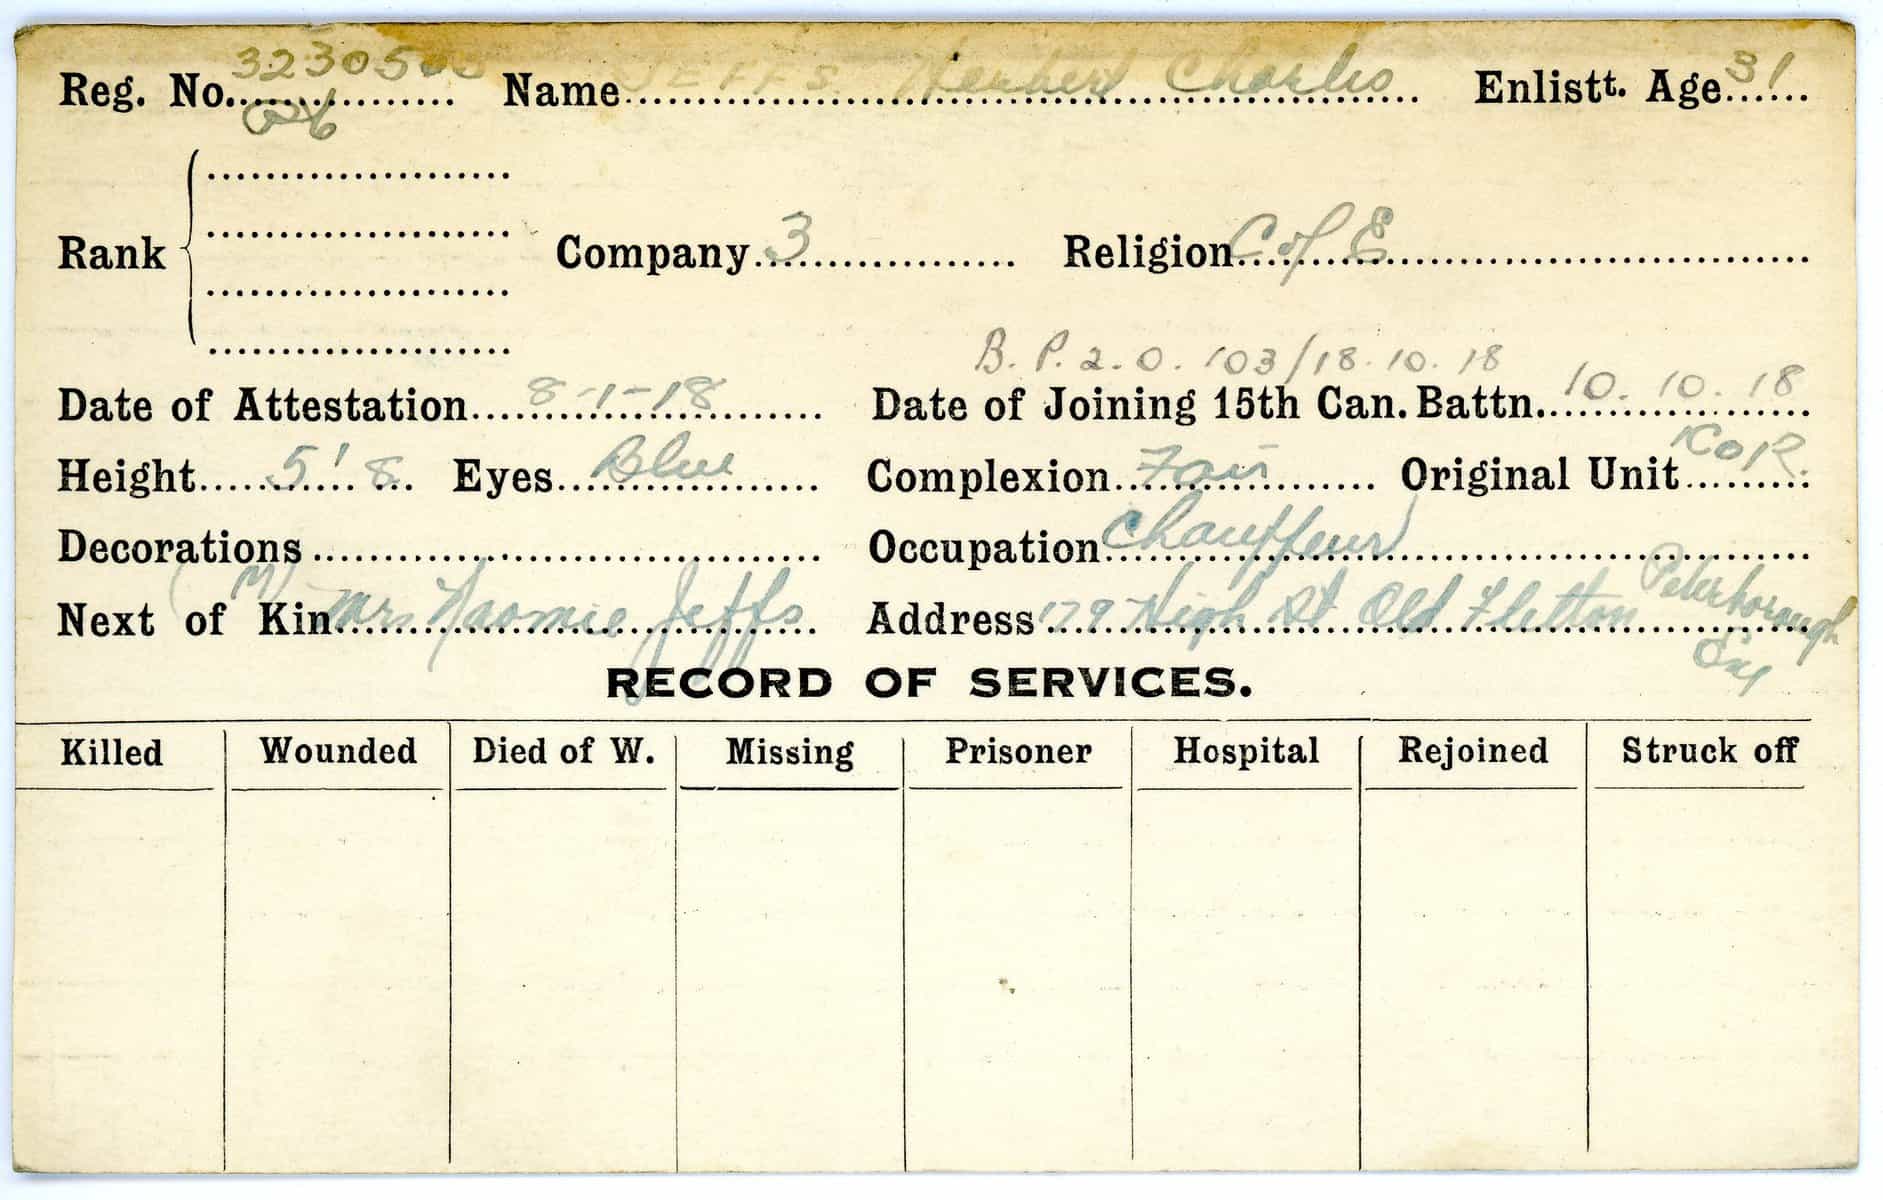 Reg. No. 3230503 Name JEFFS. Herbert Charles Enlistt. Age 31
Rank Company 3 Religion C of E
B. P. 2. O. 103/18.10.18
Date of Attestation 8-1-18 Date of Joining 15th Can. Battn. 10.10.18
Height 5' 8 Eyes Blue Complexion Fair Original Unit 1 C O R.
Decorations Occupation Chauffeur
Next of Kin (M) Mrs Naomie Jeffs Address 179 High St Old Fletton Peterborough
Eng
RECORD OF SERVICES.
Killed Wounded Died of W. Missing Prisoner Hospital Rejoined Struck off